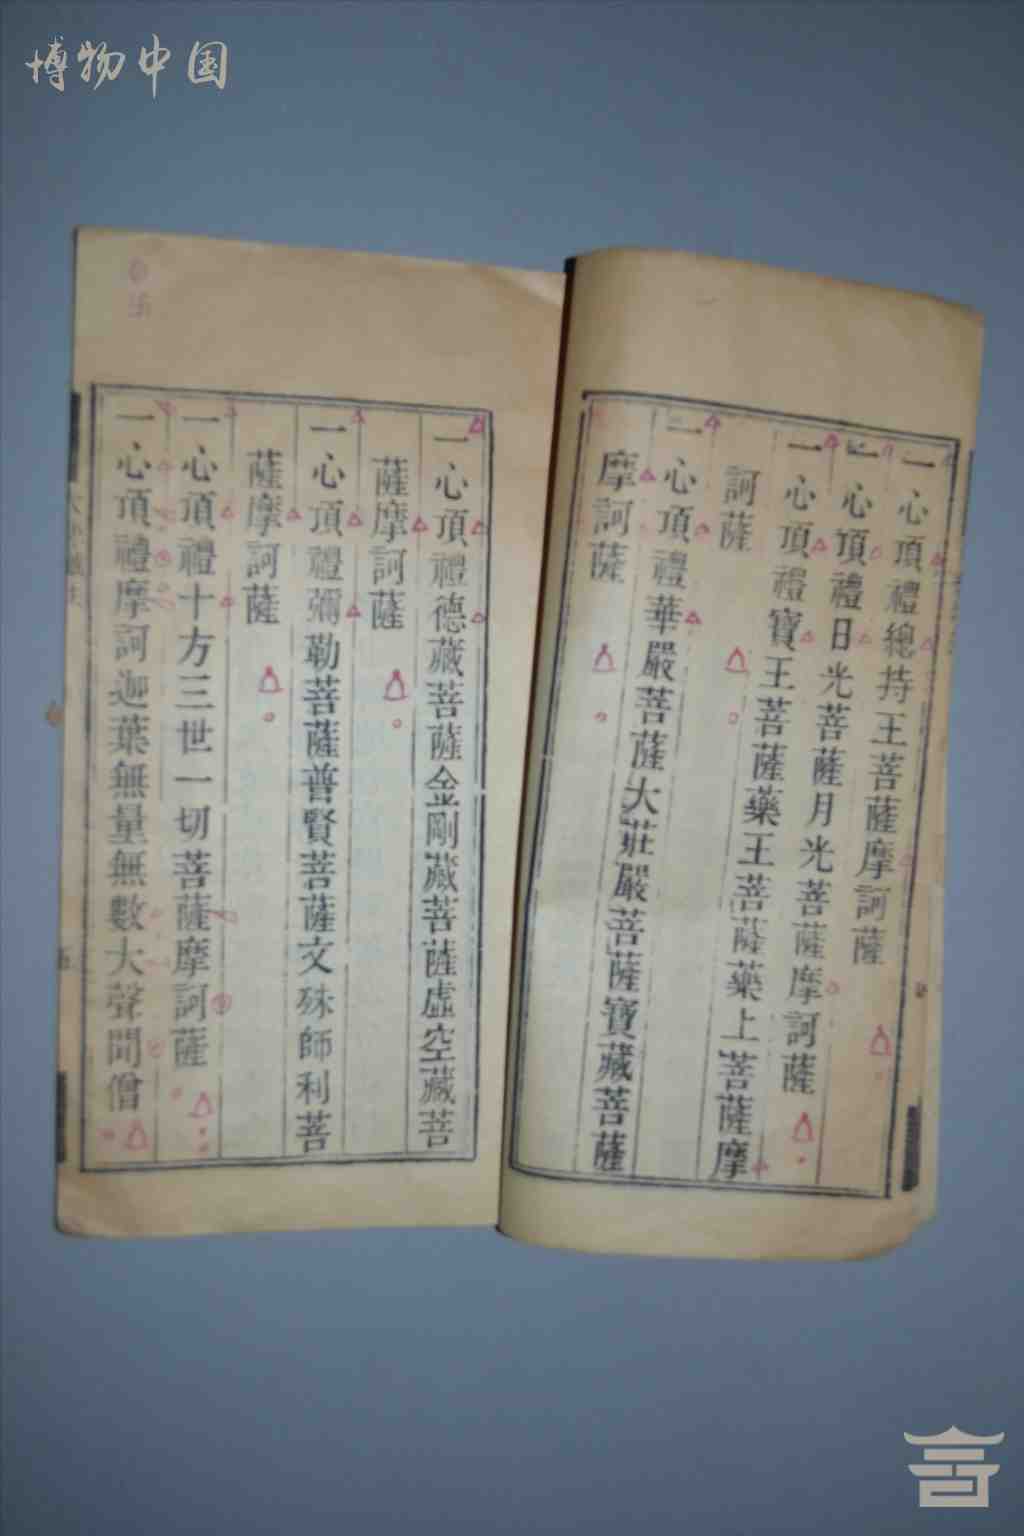 博物中国
一心頂禮總持王菩薩摩訶薩
一心頂禮日光菩薩月光菩薩摩訶薩
一心頂禮寶王菩薩藥王菩薩藥上菩薩摩
訶薩
一心頂禮華嚴菩薩大莊嚴菩薩寶藏菩薩
摩訶薩
一心頂禮德藏菩薩金剛藏菩薩虛空藏菩
薩摩訶薩
一心頂禮彌勒菩薩普賢菩薩文殊師利菩
薩摩訶薩
一心頂禮十方三世一切菩薩摩訶薩
一心頂禮摩訶迦葉無量無數大聲聞僧